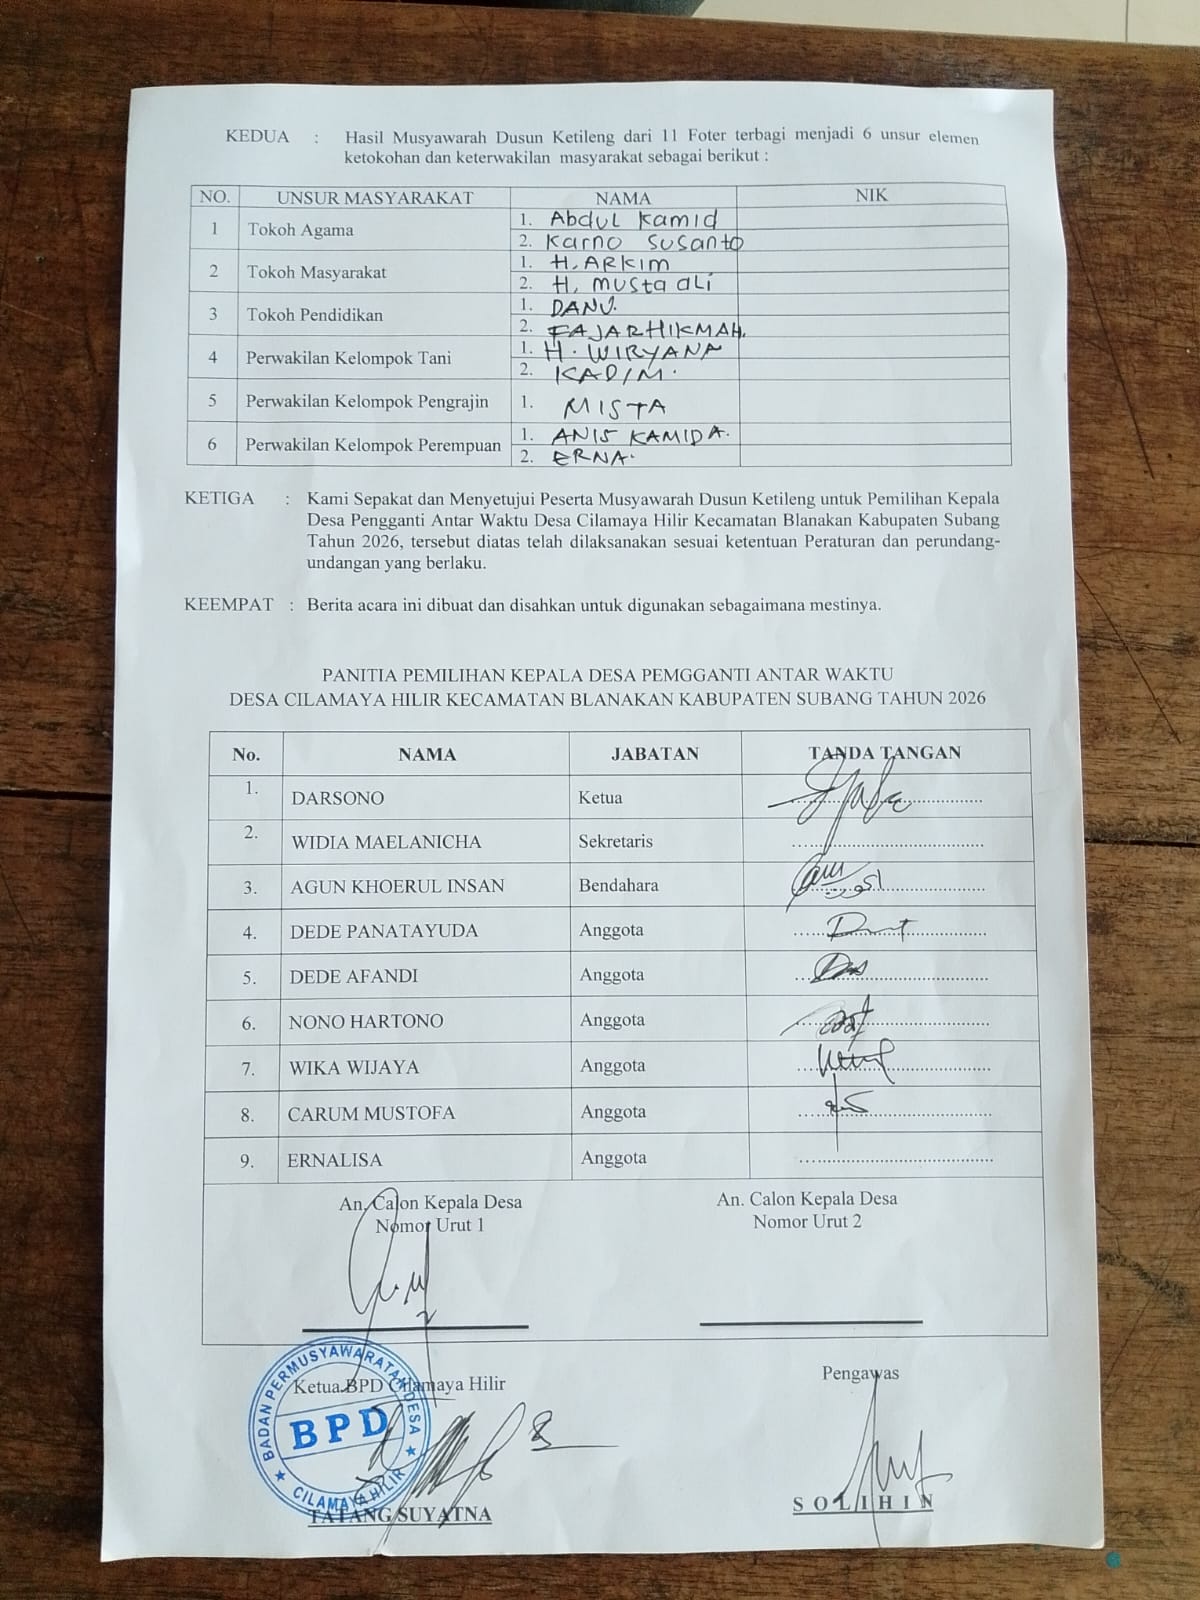 KEDUA : Hasil Musyawarah Dusun Ketileng dari 11 Foter terbagi menjadi 6 unsur elemen
ketokohan dan keterwakilan masyarakat sebagai berikut :
NO. UNSUR MASYARAKAT NAMA NIK
1 Tokoh Agama 1. Abdul Kamid
2. Karno Susanto
2 Tokoh Masyarakat 1. H. ARKIM
2. H. Musta ali
3 Tokoh Pendidikan 1. DANU.
2. FAJARHIKMAH.
4 Perwakilan Kelompok Tani 1. H. WIRYANA
2. KADIM.
5 Perwakilan Kelompok Pengrajin 1. MISTA
6 Perwakilan Kelompok Perempuan 1. ANIS KAMIDA.
2. ERNA.
KETIGA : Kami Sepakat dan Menyetujui Peserta Musyawarah Dusun Ketileng untuk Pemilihan Kepala
Desa Pengganti Antar Waktu Desa Cilamaya Hilir Kecamatan Blanakan Kabupaten Subang
Tahun 2026, tersebut diatas telah dilaksanakan sesuai ketentuan Peraturan dan perundang-
undangan yang berlaku.
KEEMPAT : Berita acara ini dibuat dan disahkan untuk digunakan sebagaimana mestinya.
PANITIA PEMILIHAN KEPALA DESA PEMGGANTI ANTAR WAKTU
DESA CILAMAYA HILIR KECAMATAN BLANAKAN KABUPATEN SUBANG TAHUN 2026
No. NAMA JABATAN TANDA TANGAN
1. DARSONO Ketua
2. WIDIA MAELANICHA Sekretaris
3. AGUN KHOERUL INSAN Bendahara
4. DEDE PANATAYUDA Anggota
5. DEDE AFANDI Anggota
6. NONO HARTONO Anggota
7. WIKA WIJAYA Anggota
8. CARUM MUSTOFA Anggota
9. ERNALISA Anggota
An. Calon Kepala Desa An. Calon Kepala Desa
Nomor Urut 1 Nomor Urut 2
Ketua BPD Cilamaya Hilir Pengawas
BADAN PERMUSYAWARATAN DESA
BPD
CILAMAYA HILIR
TATANG SUYATNA SOLIHIN